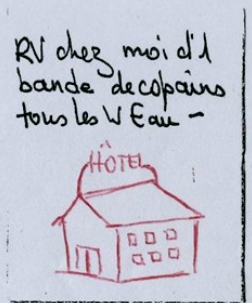 RV chez moi d'1
bande de copains
tous les W E au -
HÔTEL